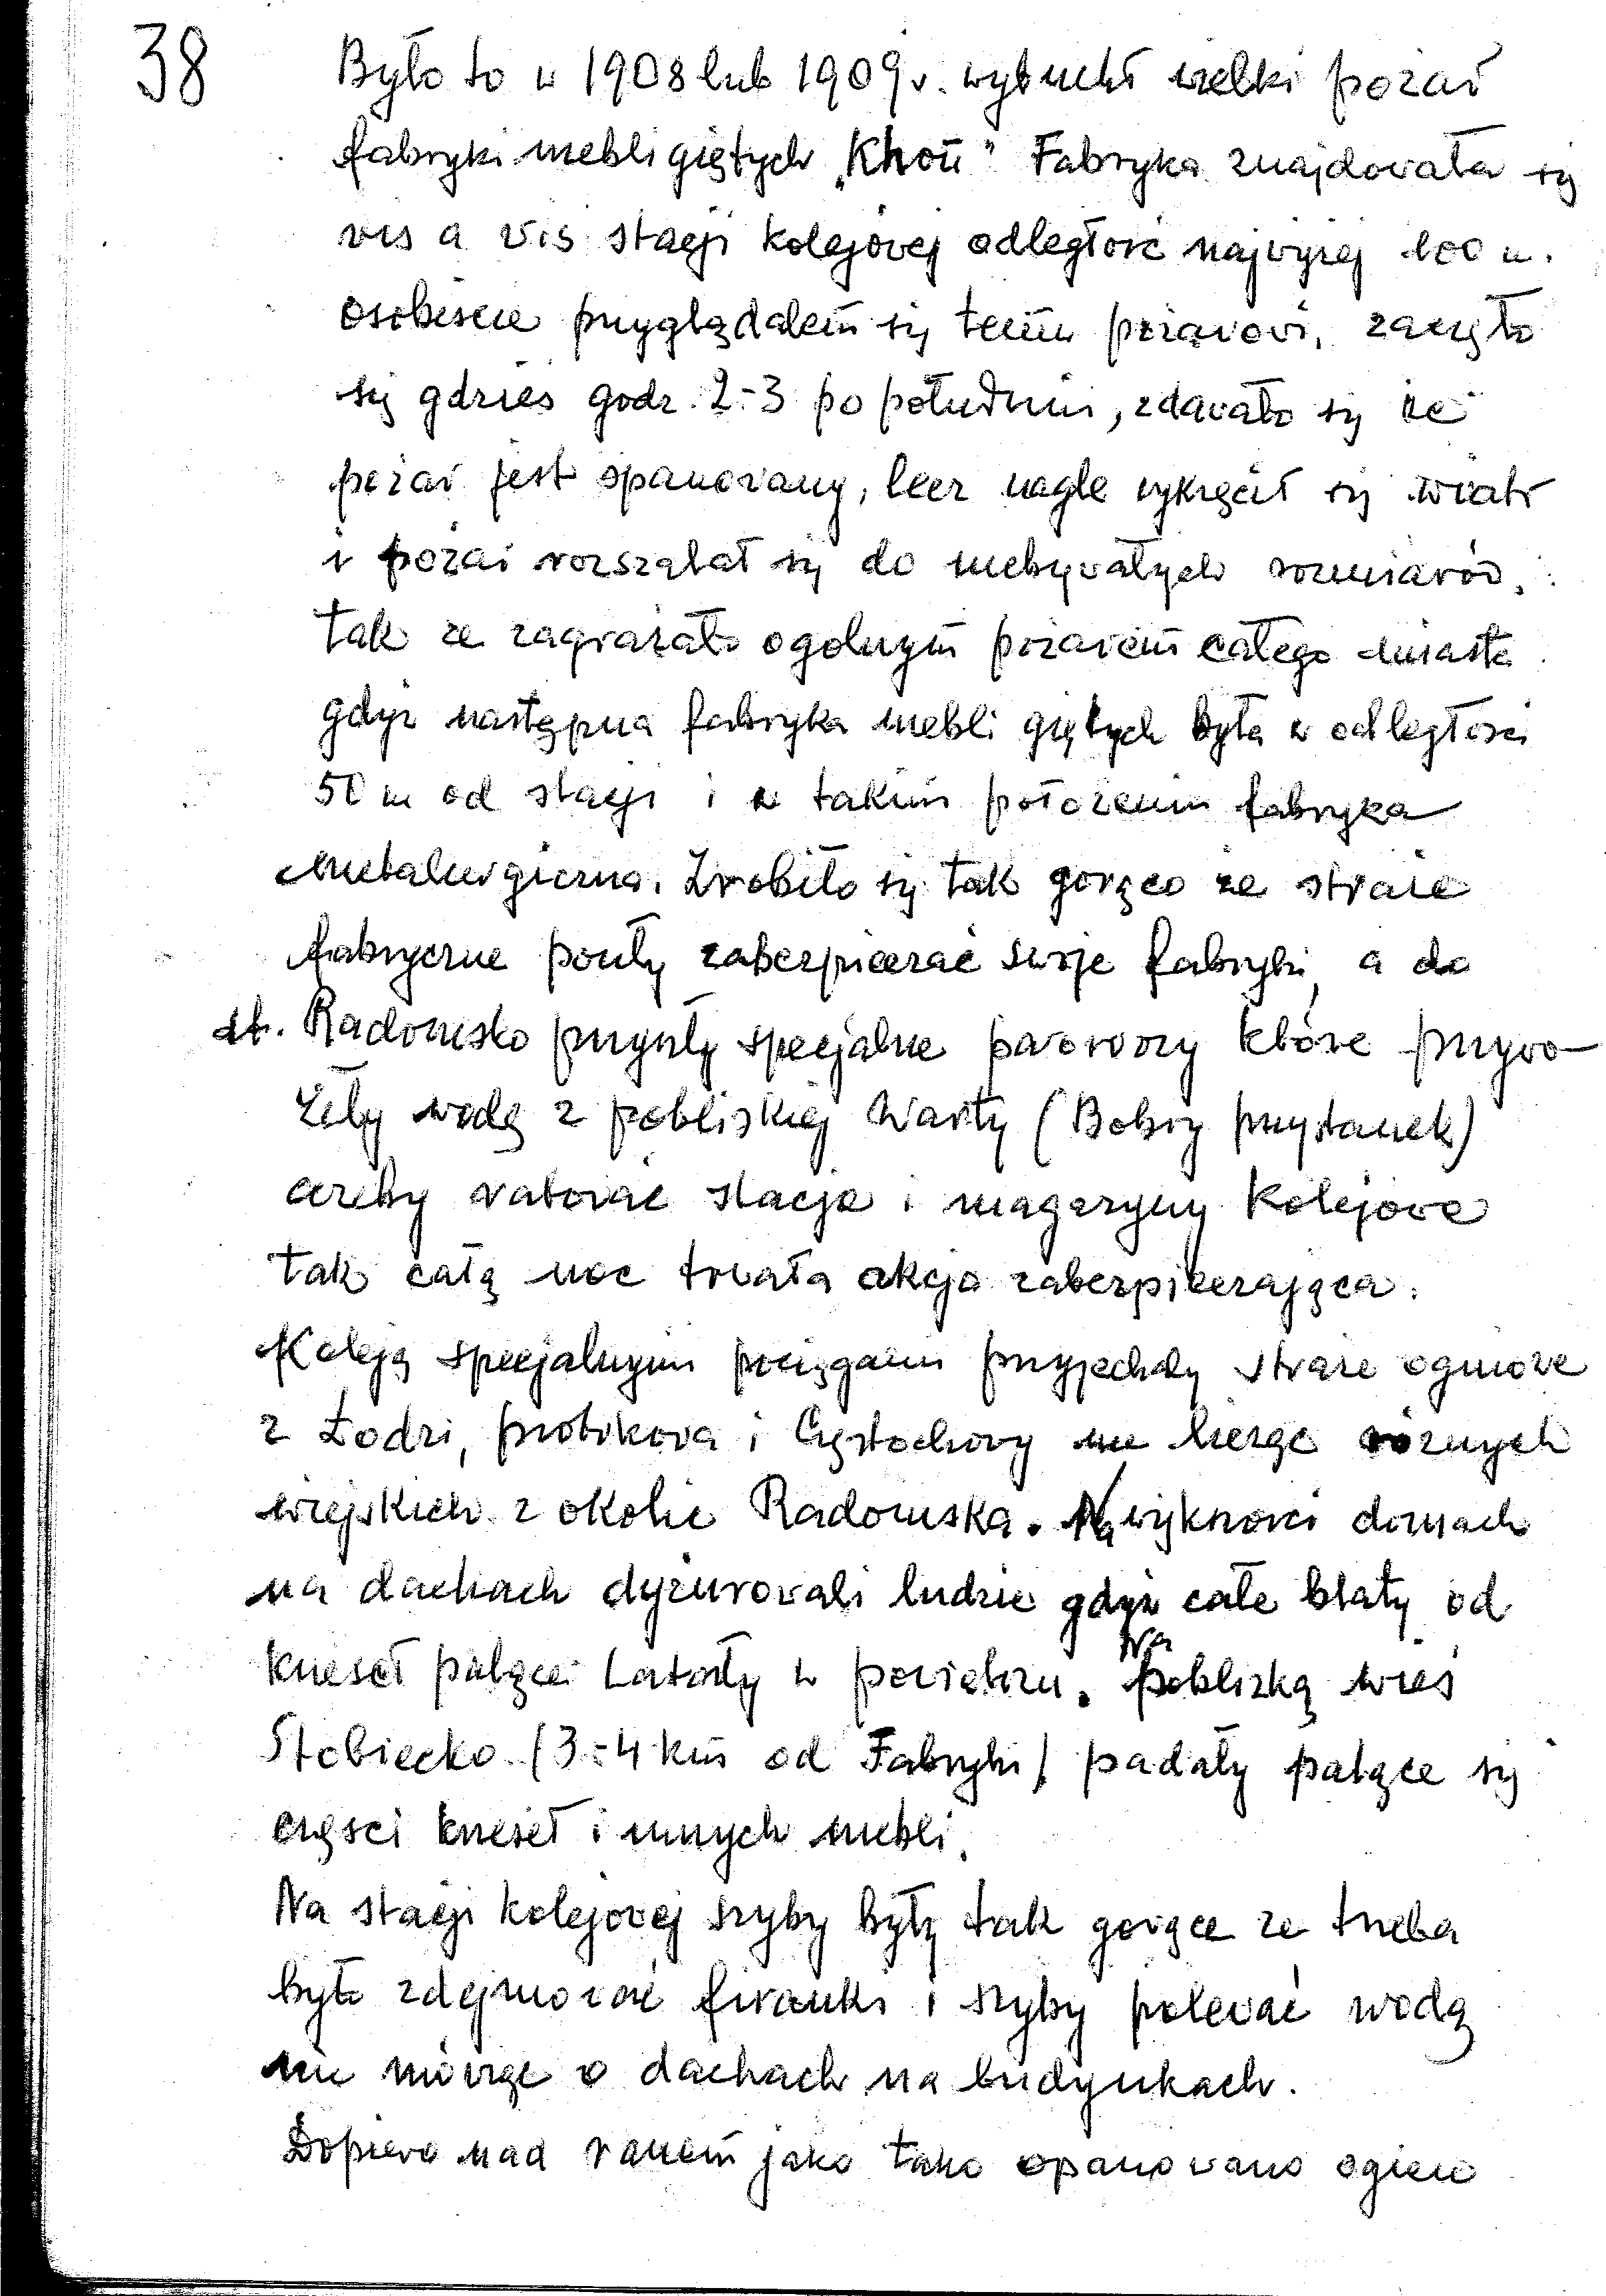 38
Było to w 1908 lub 1909 r. wybuchł wielki pożar
fabryki mebli giętych „Khon" Fabryka znajdowała się
vis a vis stacji kolejowej odległość najwyżej 100 m.
osobiscie przyglądałem się temu pożarowi, zaczęło
się gdzieś godz. 2-3 po południu, zdawało się że
pożar jest opanowany, lecz nagle wykręcił się wiatr
i pożar rozszalał się do niebywałych rozmiarów,
tak że zagrażało ogólnym pożarem całego miasta
gdyż następna fabryka mebli giętych była w odległosci
50 m od stacji i w takim położeniu fabryka
Metalurgiczna. Zrobiło się tak gorąco że straże
fabryczne poszły zabezpieczać swoje fabryki, a do
st. Radomsko przyszły specjalne parowozy które przywo-
ziły wodę z pobliskiej Warty (Bobry przystanek)
ażeby ratować stacje i magazyny kolejowe
tak całą noc trwała akcja zabezpieczająca.
Koleją specjalnymi pociągami przyjechały straże ogniowe
z Łodzi, piotrkowa i Częstochowy nie licząc różnych
wiejskich z okolic Radomska. Na większości domach
na dachach dyżurowali ludzie gdyż całe blaty od
krzeseł palące latały w powietrzu. Na pobliżką wieś
Stobiecko (3-4 km od Fabryki) padały palące się
częsci krzeseł i innych mebli.
Na stacji kolejowej szyby były tak gorące że trzeba
było zdejmować firanki i szyby polewać wodą
nie mówiąc o dachach na budynkach.
Dopiero nad ranem jako tako opanowano ogień